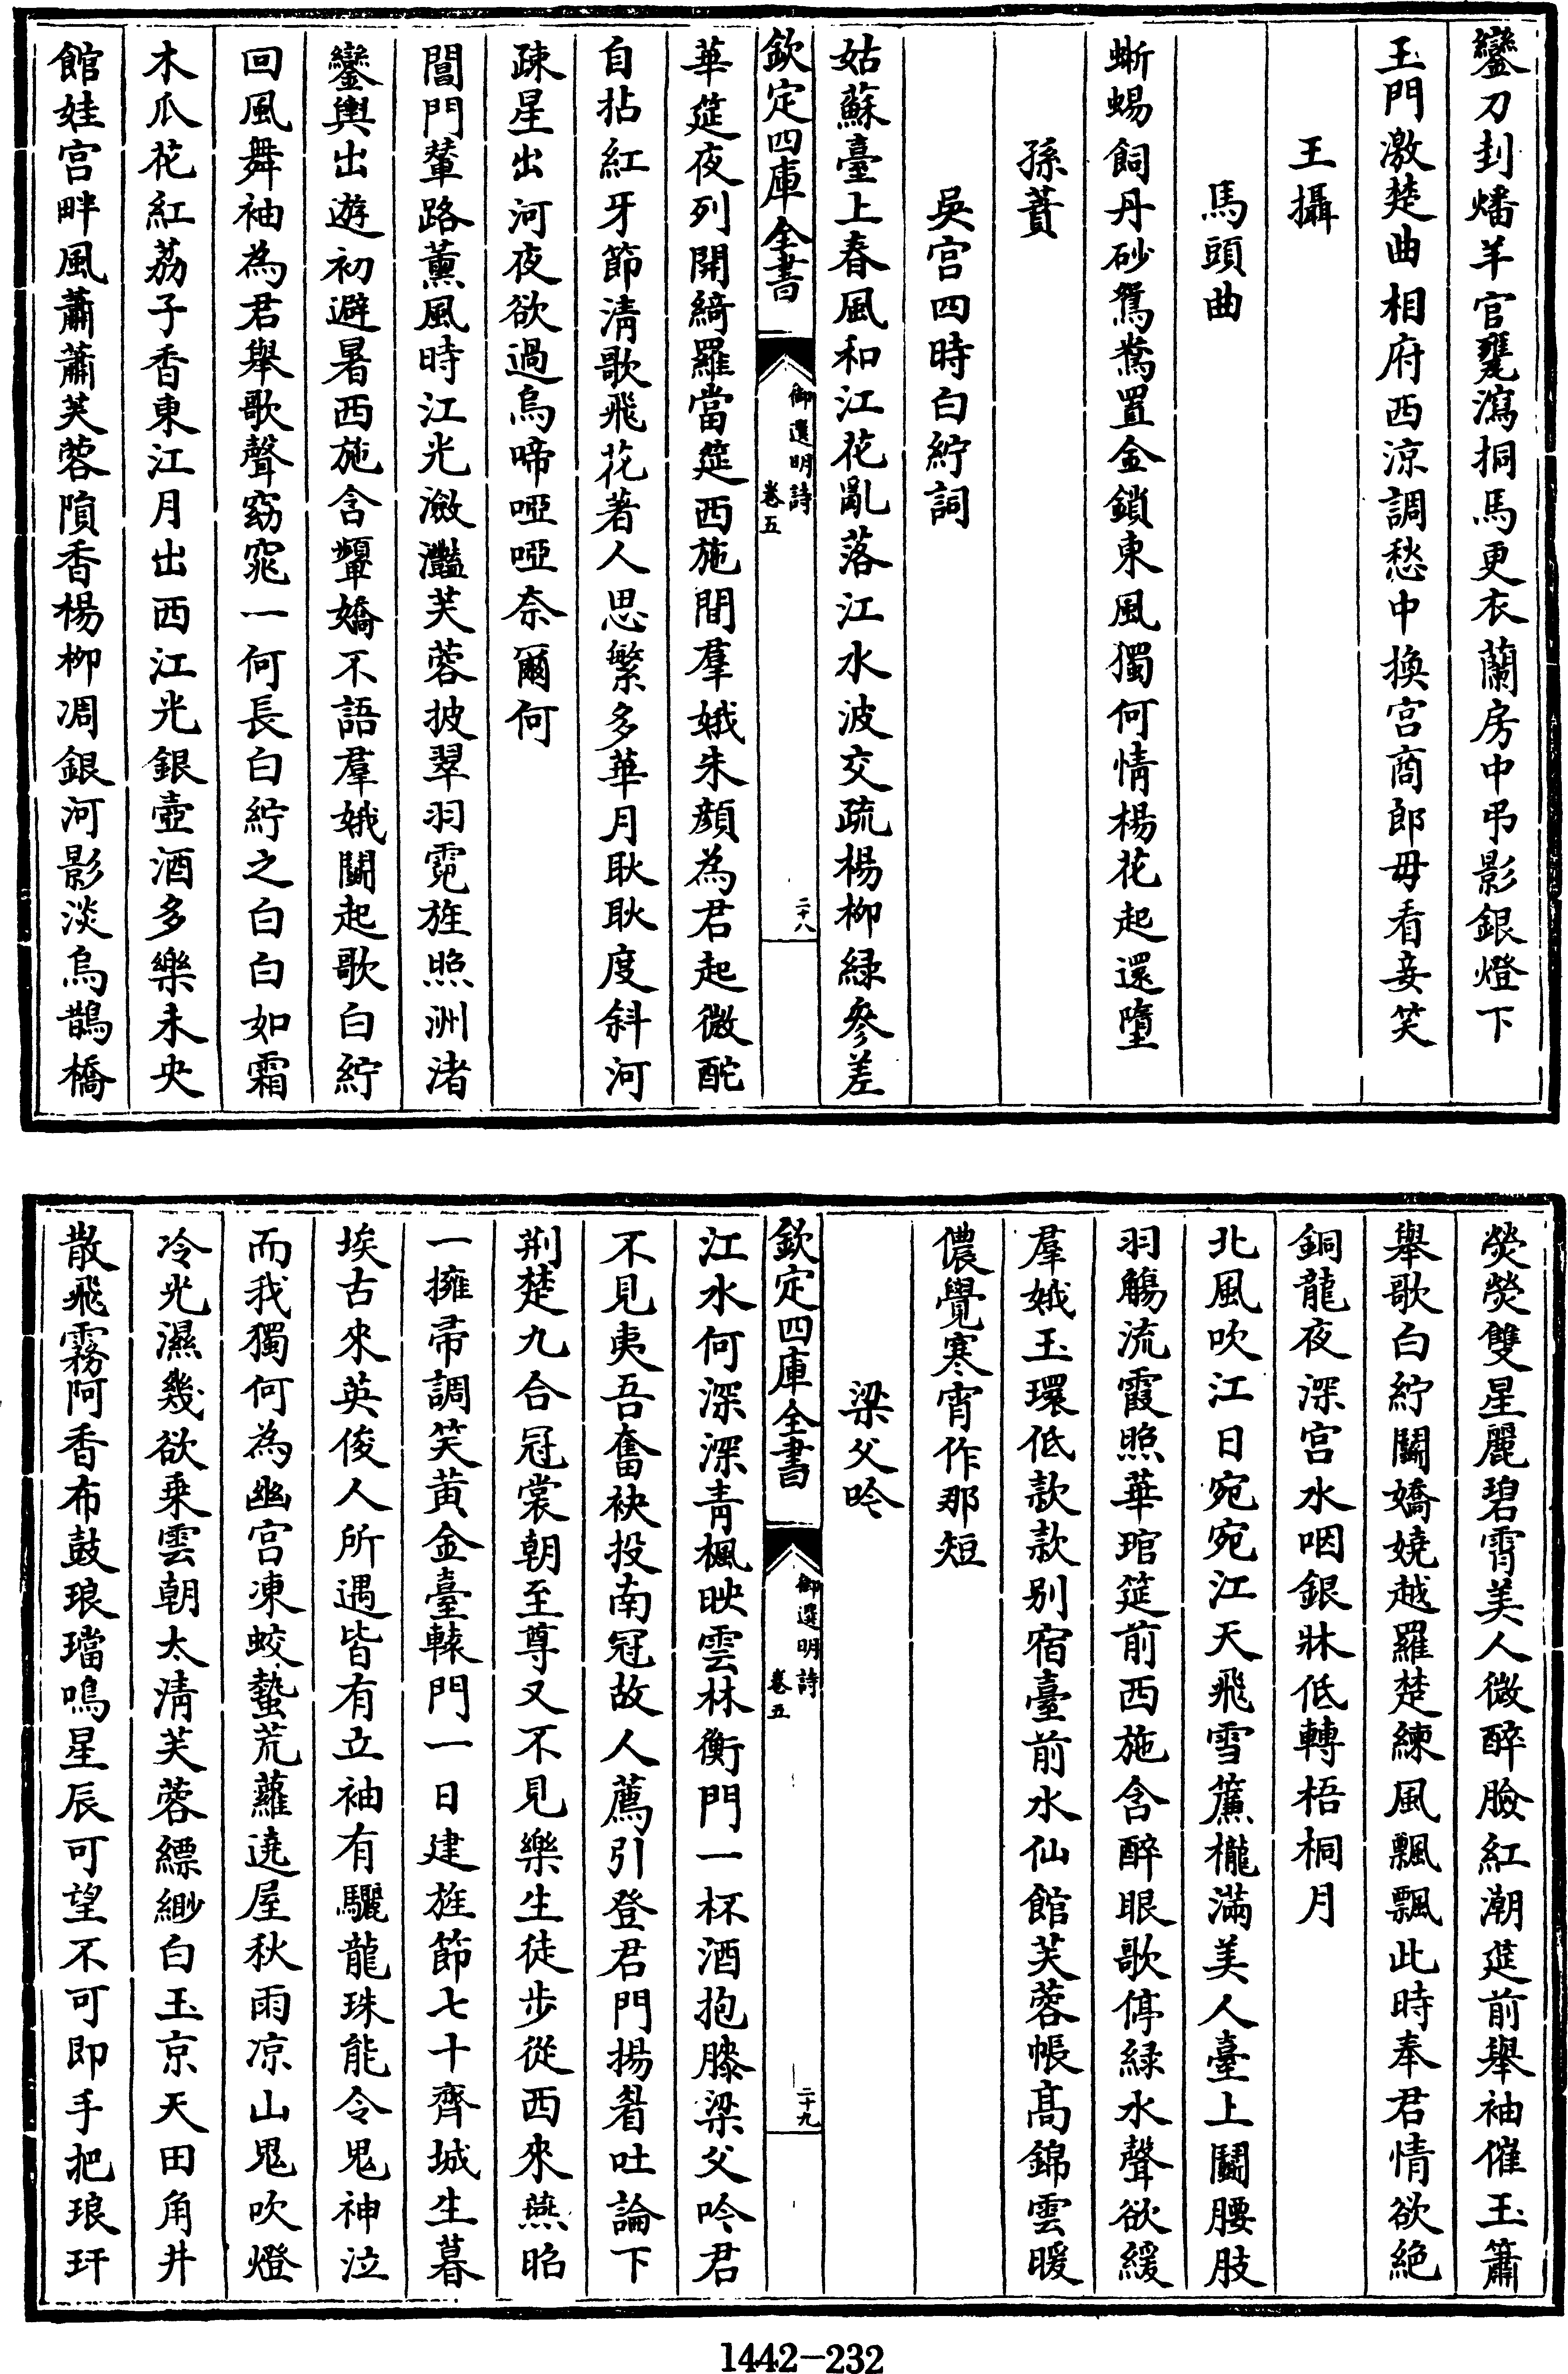 鸞刀刲燔羊官甕瀉挏馬更衣蘭房中弔影銀燈下
玉門激楚曲相府西涼調愁中換宫商郎毋看妾笑
王攝
馬頭曲
蜥蜴飼丹砂鴛鴦置金鎖東風獨何情楊花起還墮
孫蕡
吳宫四時白紵詞
姑蘇臺上春風和江花亂落江水波交疏楊柳緑參差
欽定四庫全書
御選明詩
卷五
二十八
華筵夜列開綺羅當筵西施間羣娥朱顔為君起微酡
自拈紅牙節清歌飛花著人思繁多華月耿耿度斜河
疎星出河夜欲過烏啼啞啞奈爾何
閶門輦路薫風時江光瀲灎芙蓉披翠羽霓旌照洲渚
鑾輿出遊初避暑西施含顰嬌不語羣娥鬭起歌白紵
回風舞袖為君舉歌聲窈窕一何長白紵之白白如霜
木爪花紅荔子香東江月出西江光銀壺酒多樂未央
館娃宫畔風蕭蕭芙蓉隕香楊柳凋銀河影淡烏鵲橋
熒熒雙星麗碧霄美人微醉臉紅潮筵前舉袖催玉簫
舉歌白紵鬭嬌嬈越羅楚練風飄飄此時奉君情欲絶
銅龍夜深宫水咽銀牀低轉梧桐月
北風吹江日宛宛江天飛雪簾櫳滿美人臺上鬭腰肢
羽觴流霞照華琯筵前西施含醉眼歌停緑水聲欲緩
羣娥玉環低款款别宿臺前水仙館芙蓉帳髙錦雲暖
儂覺寒宵作那短
梁父吟
欽定四庫全書
御選明詩
卷五
二十九
江水何深深青楓映雲林衡門一杯酒抱膝梁父吟君
不見夷吾奮袂投南冠故人薦引登君門揚眉吐論下
荆楚九合冠裳朝至尊又不見樂生徒步從西來燕昭
一擁帚調笑黄金臺轅門一日建旌節七十齊城生暮
埃古來英俊人所遇皆有立袖有驪龍珠能令鬼神泣
而我獨何為幽宫凍蛟蟄荒蘿遶屋秋雨凉山鬼吹燈
冷光濕幾欲乗雲朝太清芙蓉縹緲白玉京天田角井
散飛霧阿香布鼓琅璫鳴星辰可望不可即手把琅玕
1442-232